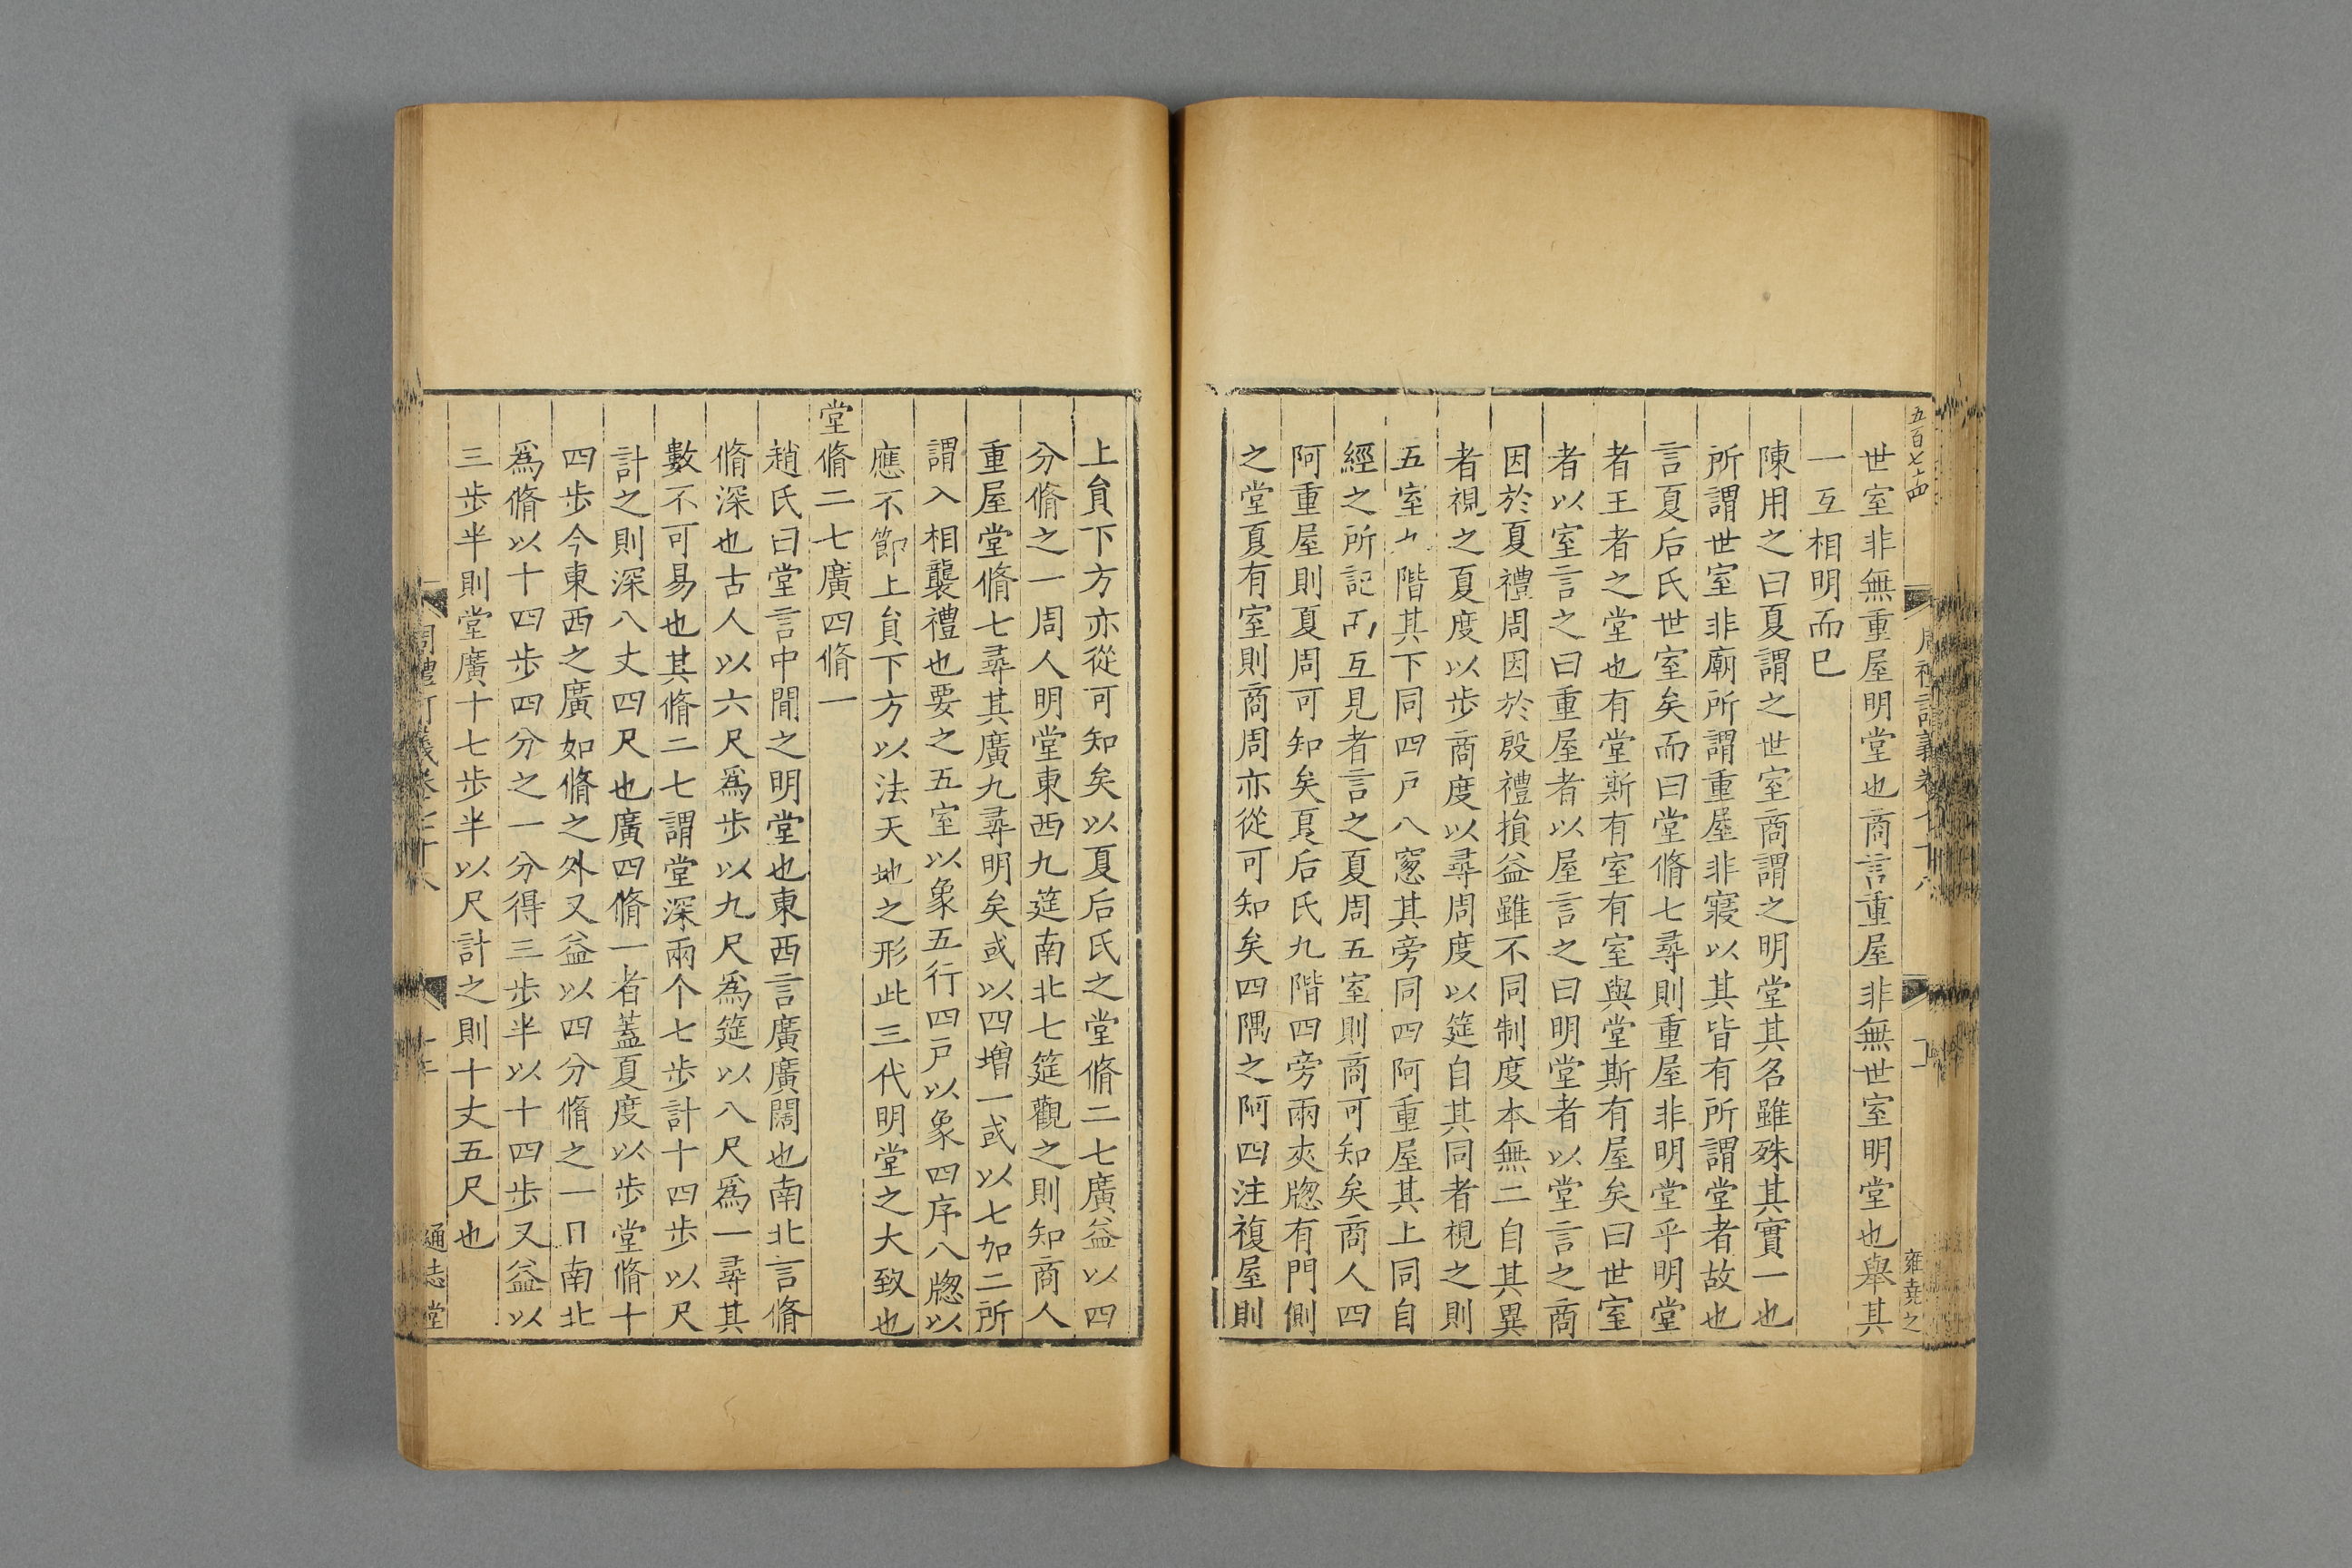 五百七十四
雍堯之
世室非無重屋明堂也商言重屋非無世室明堂也舉其
一互相明而巳
陳用之曰夏謂之世室商謂之明堂其名雖殊其實一也
所謂世室非廟所謂重屋非寢以其皆有所謂堂者故也
言夏后氏世室矣而曰堂脩七尋則重屋非明堂乎明堂
者王者之堂也有堂斯有室有室與堂斯有屋矣曰世室
者以室言之曰重屋者以屋言之曰明堂者以堂言之商
因於夏禮周因於殷禮損益雖不同制度本無二自其異
者視之夏度以步商度以尋周度以筵自其同者視之則
五室九階其下同四戶八窻其旁同四阿重屋其上同自
經之所記互見者言之夏周五室則商可知矣商人四
阿重屋則夏周可知矣夏后氏九階四旁兩夾牕有門側
之堂夏有室則商周亦從可知矣四隅之阿四注複屋則
上貟下方亦從可知矣以夏后氏之堂脩二七廣益以四
分脩之一周人明堂東西九筵南北七筵觀之則知商人
重屋堂脩七尋其廣九尋明矣或以四增一或以七加二所
謂入相襲禮也要之五室以象五行四戸以象四序八牕以
應不節上貟下方以法天地之形此三代明堂之大致也
堂脩二七廣四脩一
趙氏曰堂言中間之明堂也東西言廣廣闊也南北言脩
脩深也古人以六尺爲步以九尺爲筵以八尺爲一尋其
數不可易也其脩二七謂堂深兩个七步計十四步以尺
計之則深八丈四尺也廣四脩一者蓋夏度以步堂脩十
四步今東西之廣如脩之外又益以四分脩之一南北
爲脩以十四步四分之一分得三步半以十四步又益以
三步半則堂廣十七步半以尺計之則十丈五尺也
通志堂